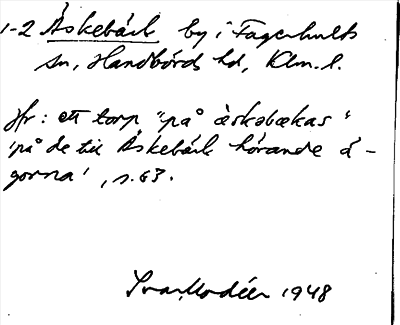 1-2 Åskebäck by i Fagerhults
sn, Handbörds hd, Klm. l.
Jfr: ett torp "på àskəbækas"
'på de till Åskebäck hörande ä-
gorna', s. 63.
Ivar Modéer 1948